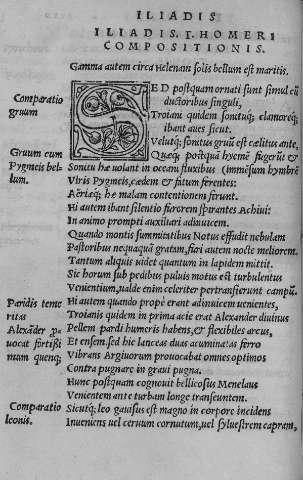 ILIADIS
ILIADIS. Γ. HOMERI
COMPOSITIONIS.
Gamma autem circa Helenam solis bellum est maritis.
Comparatio
gruum
SED postquam ornati sunt simul cũ
ductoribus singuli,
Troiani quidem sonituq; clamoreq;
ibant aues sicut.
Velutq; sonitus gruũ est cælitus ante,
Gruum cum
Pygmeis bel-
lum.
Quæq; postquã hyemẽ fugerũt &
(immẽsum hymbrẽ
Sonitu hæ uolant in oceani fluxibus
Viris Pygmeis, cædem & fatum ferentes:
Aëriæq; hæ malam contentionem ferunt.
Hi autem ibant silentio furorem spirantes Achiui:
In animo prompti auxiliari adinuicem.
Quando montis summitatibus Notus effudit nebulam
Pastoribus nequaquã gratam, furi autem nocte meliorem.
Tantum aliquis uidet quantum in lapidem mittit.
Sic horum sub pedibus puluis motus est turbulentus
Venientium, ualde enim celeriter pertransierunt campũ.
Paridis teme
ritas
Hi autem quando propè erant adinuicem uenientes,
Troianis quidem in prima acie erat Alexander diuinus
Alexãder ꝓ-
uocat fortißi-
mum quenq;
Pellem pardi humeris habens, & flexibiles arcus,
Et ensem sed hic lanceas duas acuminatas ferro
Vibrans Argiuorum prouocabat omnes optimos
Contra pugnare in graui pugna.
Hunc postquam cognouit bellicosus Menelaus
Venientem ante turbam longe transeuntem.
Comparatio
leonis.
Sicutq; leo gauisus est magno in corpore incidens
Inueniens uel ceruum cornutum, uel syluestrem capram,